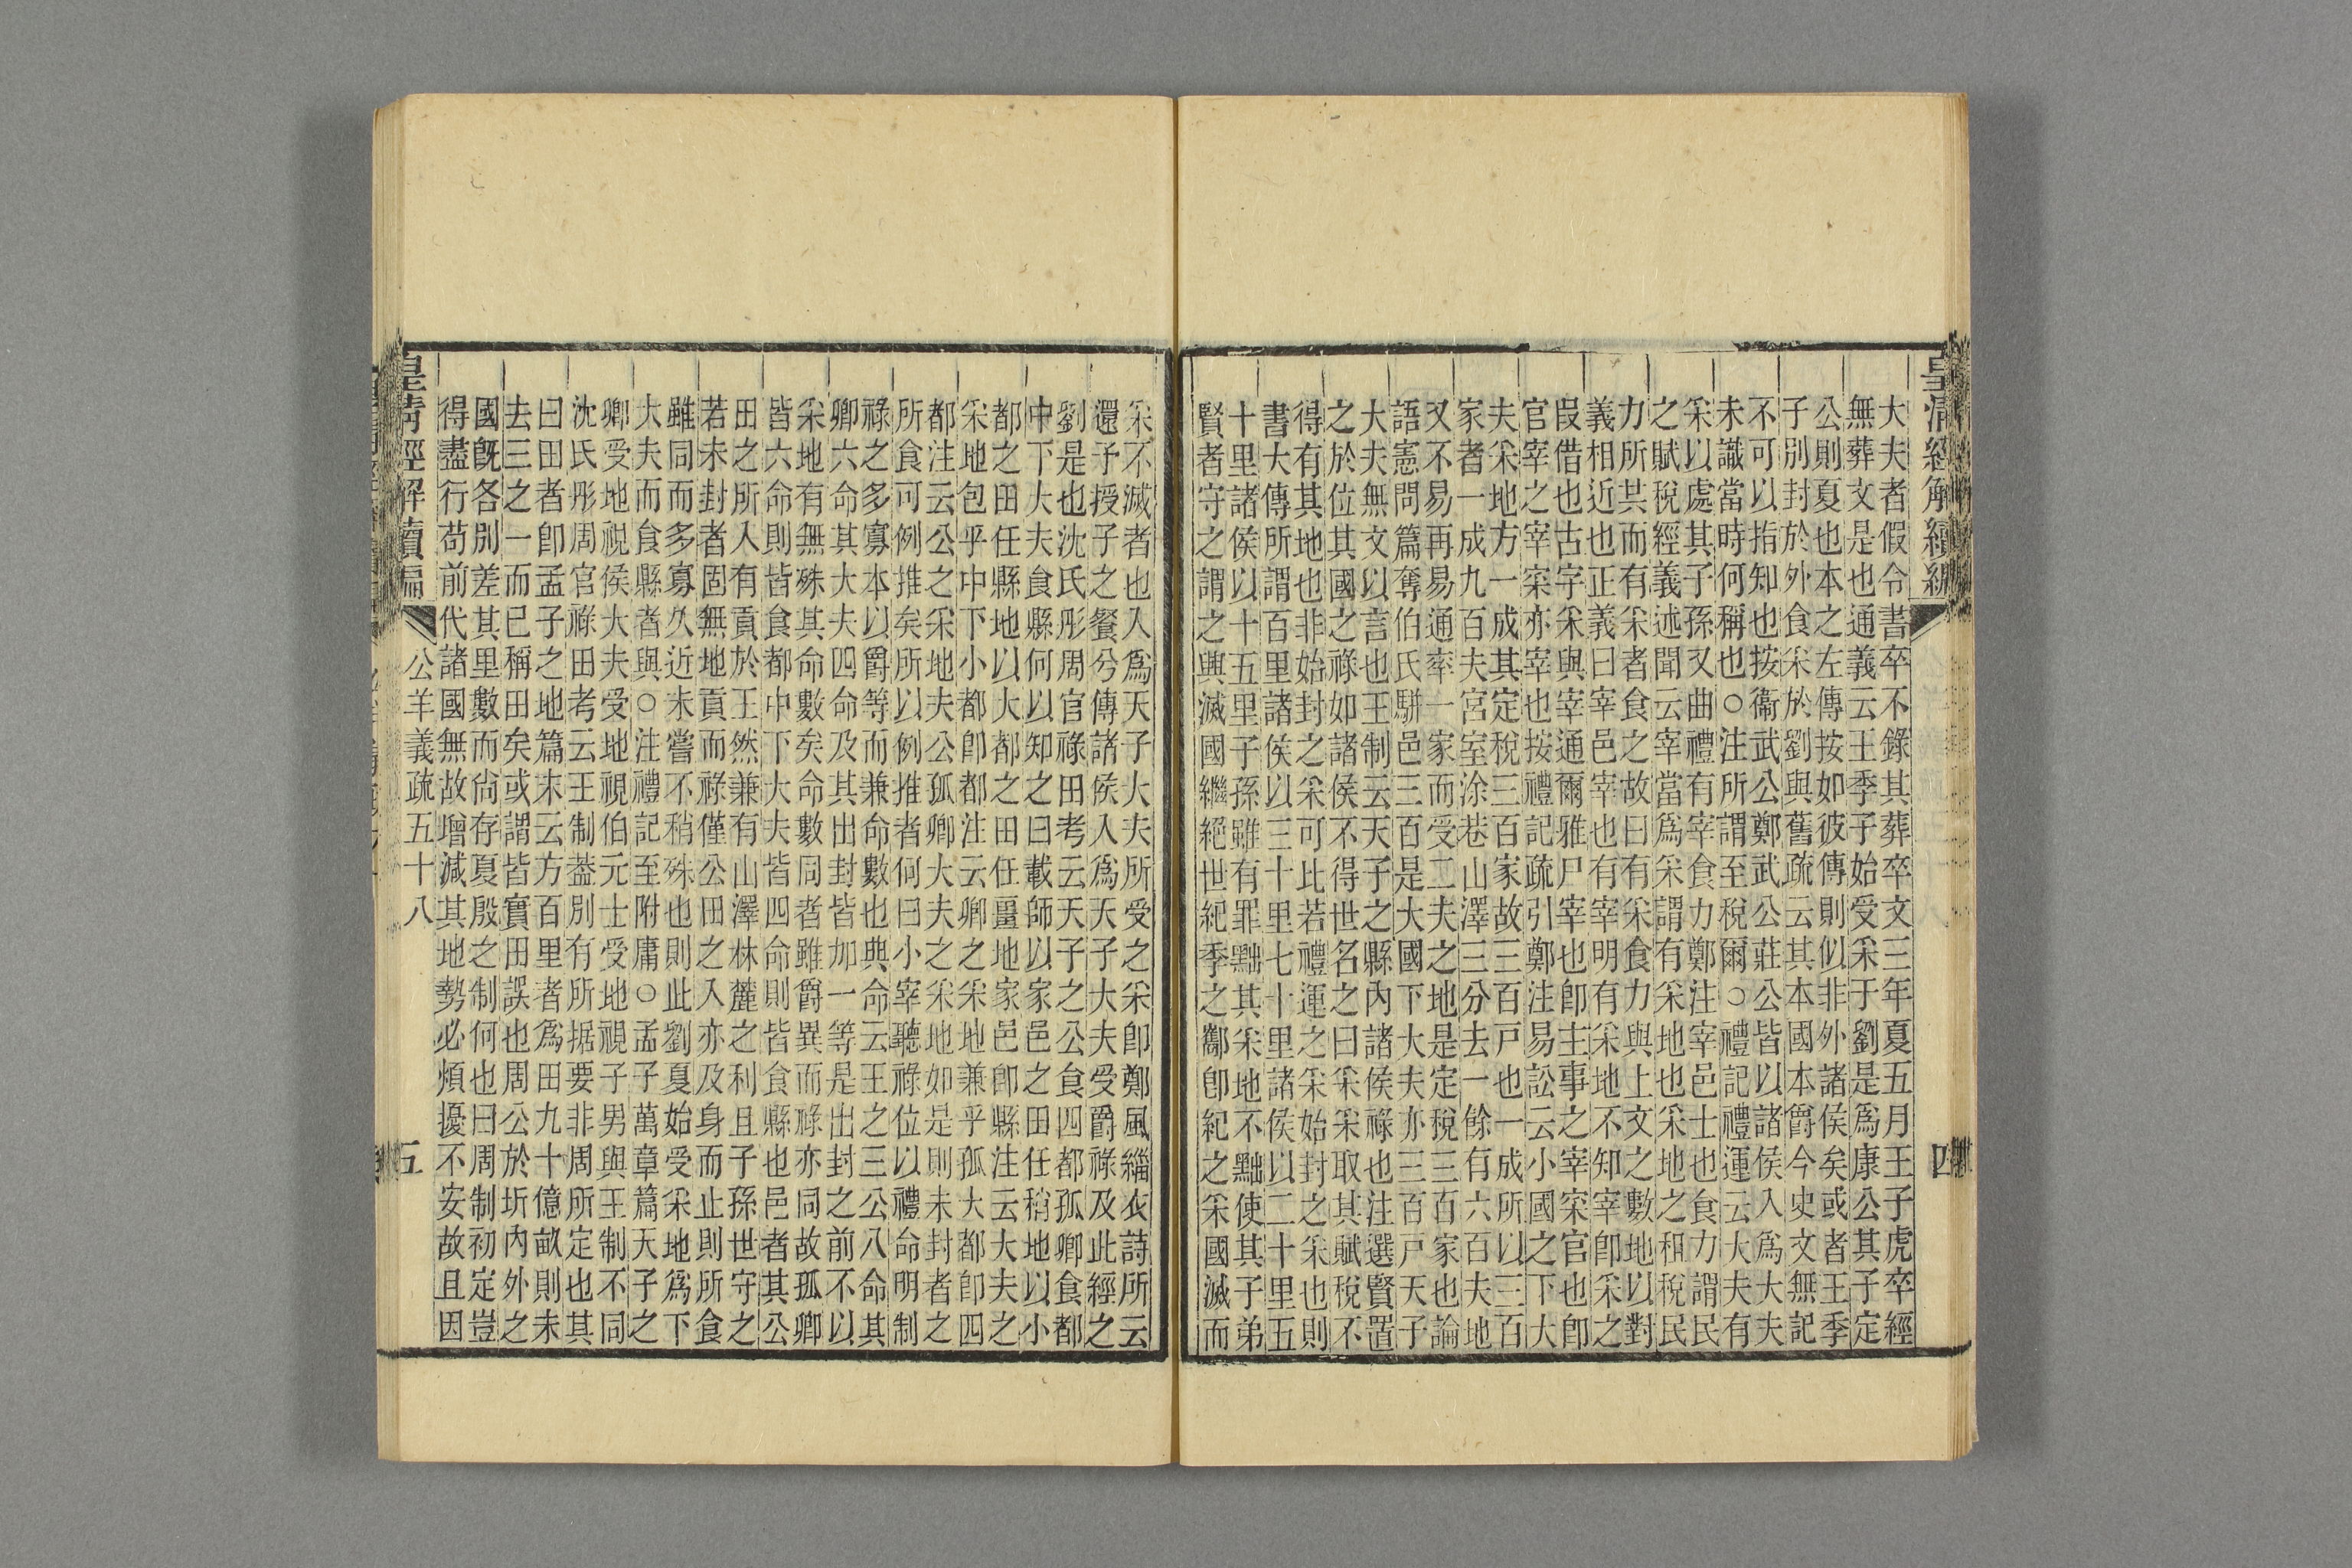 皇清經解續編
四
大夫者假令書卒不錄其葬卒文三年夏五月王子虎卒經
無葬文是也通義云王季子始受采于劉是爲康公其子定
公則夏也本之左傳按如彼傳則似非外諸侯矣或者王季
子別封於外食采於劉與舊疏云其本國本爵今史文無記
不可以指知也按衞武公鄭武公莊公皆以諸侯入爲大夫
未識當時何稱也○注所謂至稅爾○禮記禮運云大夫有
采以處其子孫又曲禮有宰食力鄭注宰邑士也食力謂民
之賦稅經義述聞云宰當爲采謂有采地也采地之租稅民
力所共而有采者食之故曰有采食力與上文之數地以對
義相近也正義曰宰邑宰也有宰明有采地不知宰卽采之
叚借也古字采與宰通爾雅尸宰也卽主事之宰寀官也卽
官宰之宰寀亦宰也按禮記疏引鄭注易訟云小國之下大
夫采地方一成其定稅三百家故三百戸也一成所以三百
家者一成九百夫宮室涂巷山澤三分去一餘有六百夫地
又不易再易通率一家而受二夫之地是定稅三百家也論
語憲問篇奪伯氏騈邑三百是大國下大夫亦三百戸天子
大夫無文以言也王制云天子之縣內諸侯祿也注選賢置
之於位其國之祿如諸侯不得世名之曰采采取其賦稅不
得有其地也非始封之采可比若禮運之采始封之采也則
書大傳所謂百里諸侯以三十里七十里諸侯以二十里五
十里諸侯以十五里子孫雖有罪黜其采地不黜使其子弟
賢者守之謂之興滅國繼絕世紀季之酅卽紀之采國滅而
采不滅者也入爲天子大夫所受之采卽鄭風緇衣詩所云
還子授子之餐兮傳諸侯入爲天子大夫受爵祿及此經之
劉是也沈氏彤周官祿田考云天子之公食四都孤卿食都
中下大夫食縣何以知之曰載師以家邑之田任稍地以小
都之田任縣地以大都之田任畺地家邑卽縣注云大夫之
采地包乎中下小都卽都注云卿之采地兼乎孤大都卽四
都注云公之采地夫公孤卿大夫之采地如是則未封者之
所食可例推矣所以例推者何曰小宰聽祿位以禮命明制
祿之多寡本以爵等而兼命數也典命云王之三公八命其
卿六命其大夫四命及其出封皆加一等是出封之前不以
采地有無殊其命數矣命數同者雖爵異而祿亦同故孤卿
皆六命則皆食都中下大夫皆四命則皆食縣也邑者其公
田之所入有貢於王然兼有山澤林麓之利且子孫世守之
若未封者固無地貢而祿僅公田之入亦及身而止則所食
雖同而多寡久近未嘗不稍殊也則此劉夏始受采地爲下
大夫而食縣者與○注禮記至附庸○孟子萬章篇天子之
卿受地視侯大夫受地視伯元士受地視子男與王制不同
沈氏彤周官祿田考云王制葢別有所据要非周所定也其
曰田者卽孟子之地篇末云方百里者爲田九十億畝則未
去三之一而已稱田矣或謂皆實田誤也周公於圻內外之
國旣各別差其里數而尙存夏殷之制何也曰周制初定豈
得盡行苟前代諸國無故增減其地勢必煩擾不安故且因
皇淸經解續編
公羊義疏五十八
五